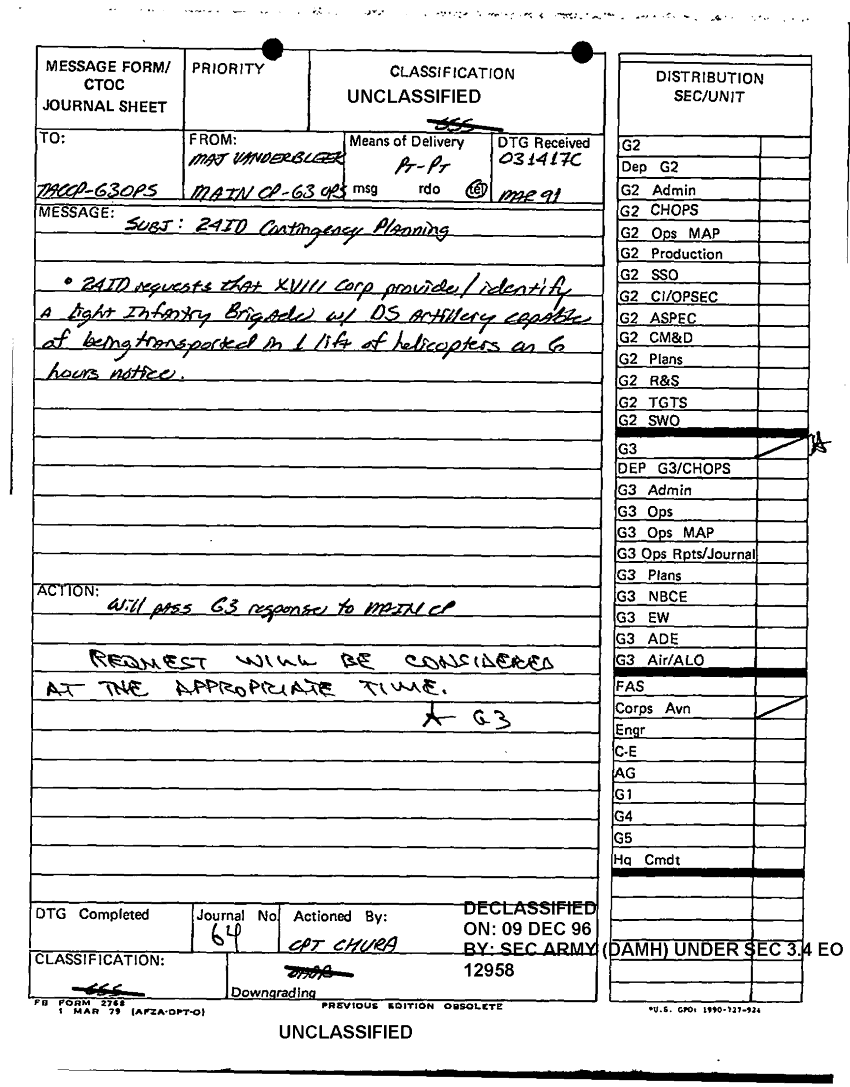 MESSAGE FORM/
CTOC
JOURNAL SHEET
PRIORITY
CLASSIFICATION
UNCLASSIFIED
TO:
TACCP-G3OPS
FROM:
MAJ VANDERBLEEK
MAIN CP-G3 OPS
Means of Delivery
PT-PT
msg rdo tel
DTG Received
031417C
MAR 91
MESSAGE:
SUBJ: 24ID Contingency Planning
• 24ID requests that XVIII Corp provide/identify
A light Infantry Brigade w/ DS Artillery capable
of being transported in 1 lift of helicopters on 6
hours notice.
ACTION:
Will pass G3 response to MAIN CP
REQUEST WILL BE CONSIDERED
AT THE APPROPRIATE TIME.
G3
DTG Completed
Journal No.
64
Actioned By:
CPT CHURA
CLASSIFICATION:
Downgrading
DECLASSIFIED
ON: 09 DEC 96
BY: SEC ARMY (DAMH) UNDER SEC 3.4 EO
12958
FB FORM 2768
1 MAR 79 (AFZA-DPT-O)
PREVIOUS EDITION OBSOLETE
UNCLASSIFIED
DISTRIBUTION
SEC/UNIT
G2
Dep G2
G2 Admin
G2 CHOPS
G2 Ops MAP
G2 Production
G2 SSO
G2 CI/OPSEC
G2 ASPEC
G2 CM&D
G2 Plans
G2 R&S
G2 TGTS
G2 SWO
G3
DEP G3/CHOPS
G3 Admin
G3 Ops
G3 Ops MAP
G3 Ops Rpts/Journal
G3 Plans
G3 NBCE
G3 EW
G3 ADE
G3 Air/ALO
FAS
Corps Avn
Engr
C-E
AG
G1
G4
G5
Hq Cmdt
*U.S. GPO: 1990-727-924